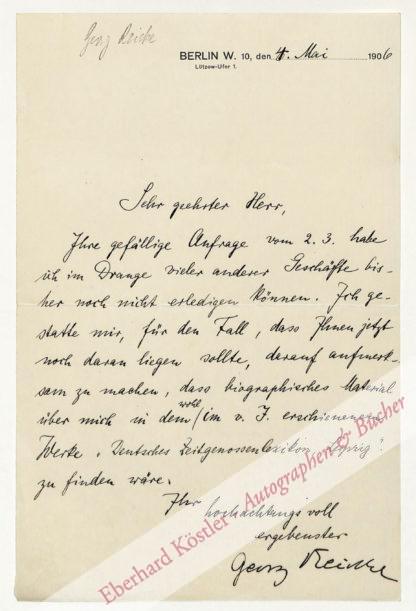 Georg Reicke
BERLIN W. 10, den 4. Mai 1906
Lützow-Ufer 1.
Sehr geehrter Herr,
Ihre gefällige Anfrage vom 2. 3. habe
ich im Drange vieler anderer Geschäfte bis-
her noch nicht erledigen können. Ich ge-
statte mir, für den Fall, dass Ihnen jetzt
noch daran liegen sollte, darauf aufmerk-
sam zu machen, dass biographisches Material
über mich in dem wohl im v. J. erschienenen
Werke „Deutsches Zeitgenossenlexikon, Leipzig“
zu finden wäre.
Ihr hochachtungsvoll
ergebenster
Georg Reicke
Eberhard Köstler - Autographen & Bücher